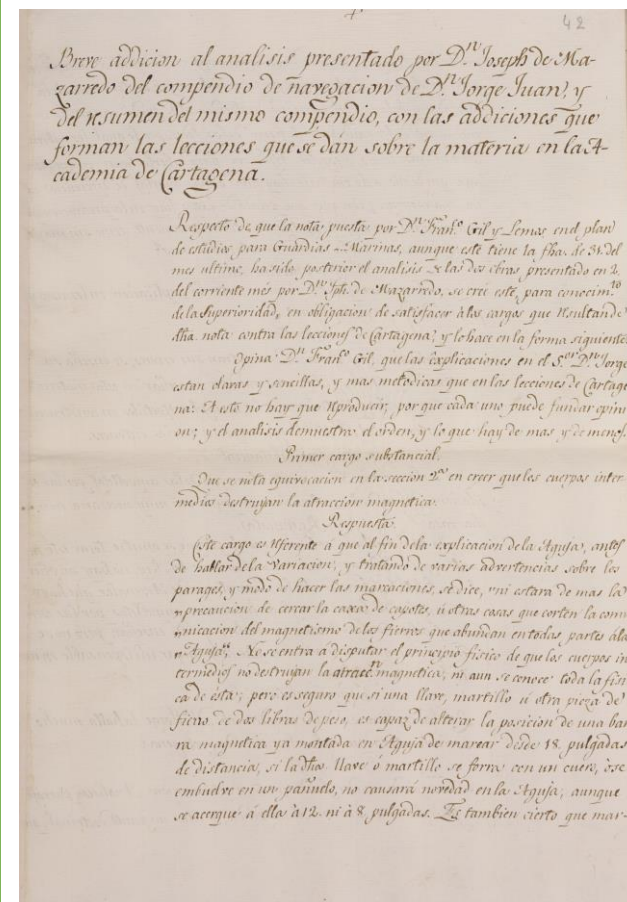 +
42
Breve addicion al analisis presentado por D.n Joseph de Ma-
zarredo del compendio de navegacion de D.n Jorge Juan, y
del resumen del mismo compendio, con las addiciones que
forman las lecciones que se dán sobre la materia en la A-
cademia de Cartagena.
Respecto de que la nota puesta por D.n Fran.co Gil y Lemos en el plan
de estudios para Guardias-Marinas, aunque esté tiene la fha. de 31. del
mes ultimo, ha sido posterior el analisis de las dos obras presentado en 2.
del corriente més por D.n Jph. de Mazarredo, se creé este, para conocim.to
de la Superioridad, en obligacion de satisfacer à los cargos que resultan de
dha. nota contra las lecciones de Cartagena; y lo hace en la forma siguiente
Opina D.n Fran.co Gil, que las explicaciones en el S.or D.n Jorge
estan claras y sencillas, y mas metodicas que en las lecciones de Cartage
na: A esto no hay que reproducir, porque cada uno puede fundar opini
on; y el analisis demuestra el orden, y lo que hay de mas y de menos.
Primer cargo substancial.
Que se nota equivocacion en la seccion 2.a en creer que los cuerpos inter
medios destruyan la atraccion magnetica.
Respuesta.
Este cargo es referente à que al fin de la explicacion de la Aguja, antes
de hablar de la variacion, y tratando de varias advertencias sobre los
parages, y modo de hacer las marcaciones, se dice, "ni estara de mas la
"precaucion de cercar la caxa de capotes, ù otras cosas que corten la comu
"nicacion del magnetismo de los fierros que abundan en todas partes á la
"Aguja". No se entra à disputar el principio fisico de que los cuerpos in
termedios no destruyan la atracc.n magnetica, ni aun se conoce toda la fisi
ca de esta; pero es seguro que si una llave, martillo ù otra pieza de
fierro de dos libras de peso, es capaz de alterar la posicion de una bar
ra magnetica ya montada en Aguja de marear desde 18. pulgadas
de distancia, si la dha llave ó martillo se forra con un cuero, òse
embuelve en un pañuelo, no causará novedad en la Aguja, aunque
se acerque á ella à 12. ni à 8. pulgadas. Es tambien cierto que mar-